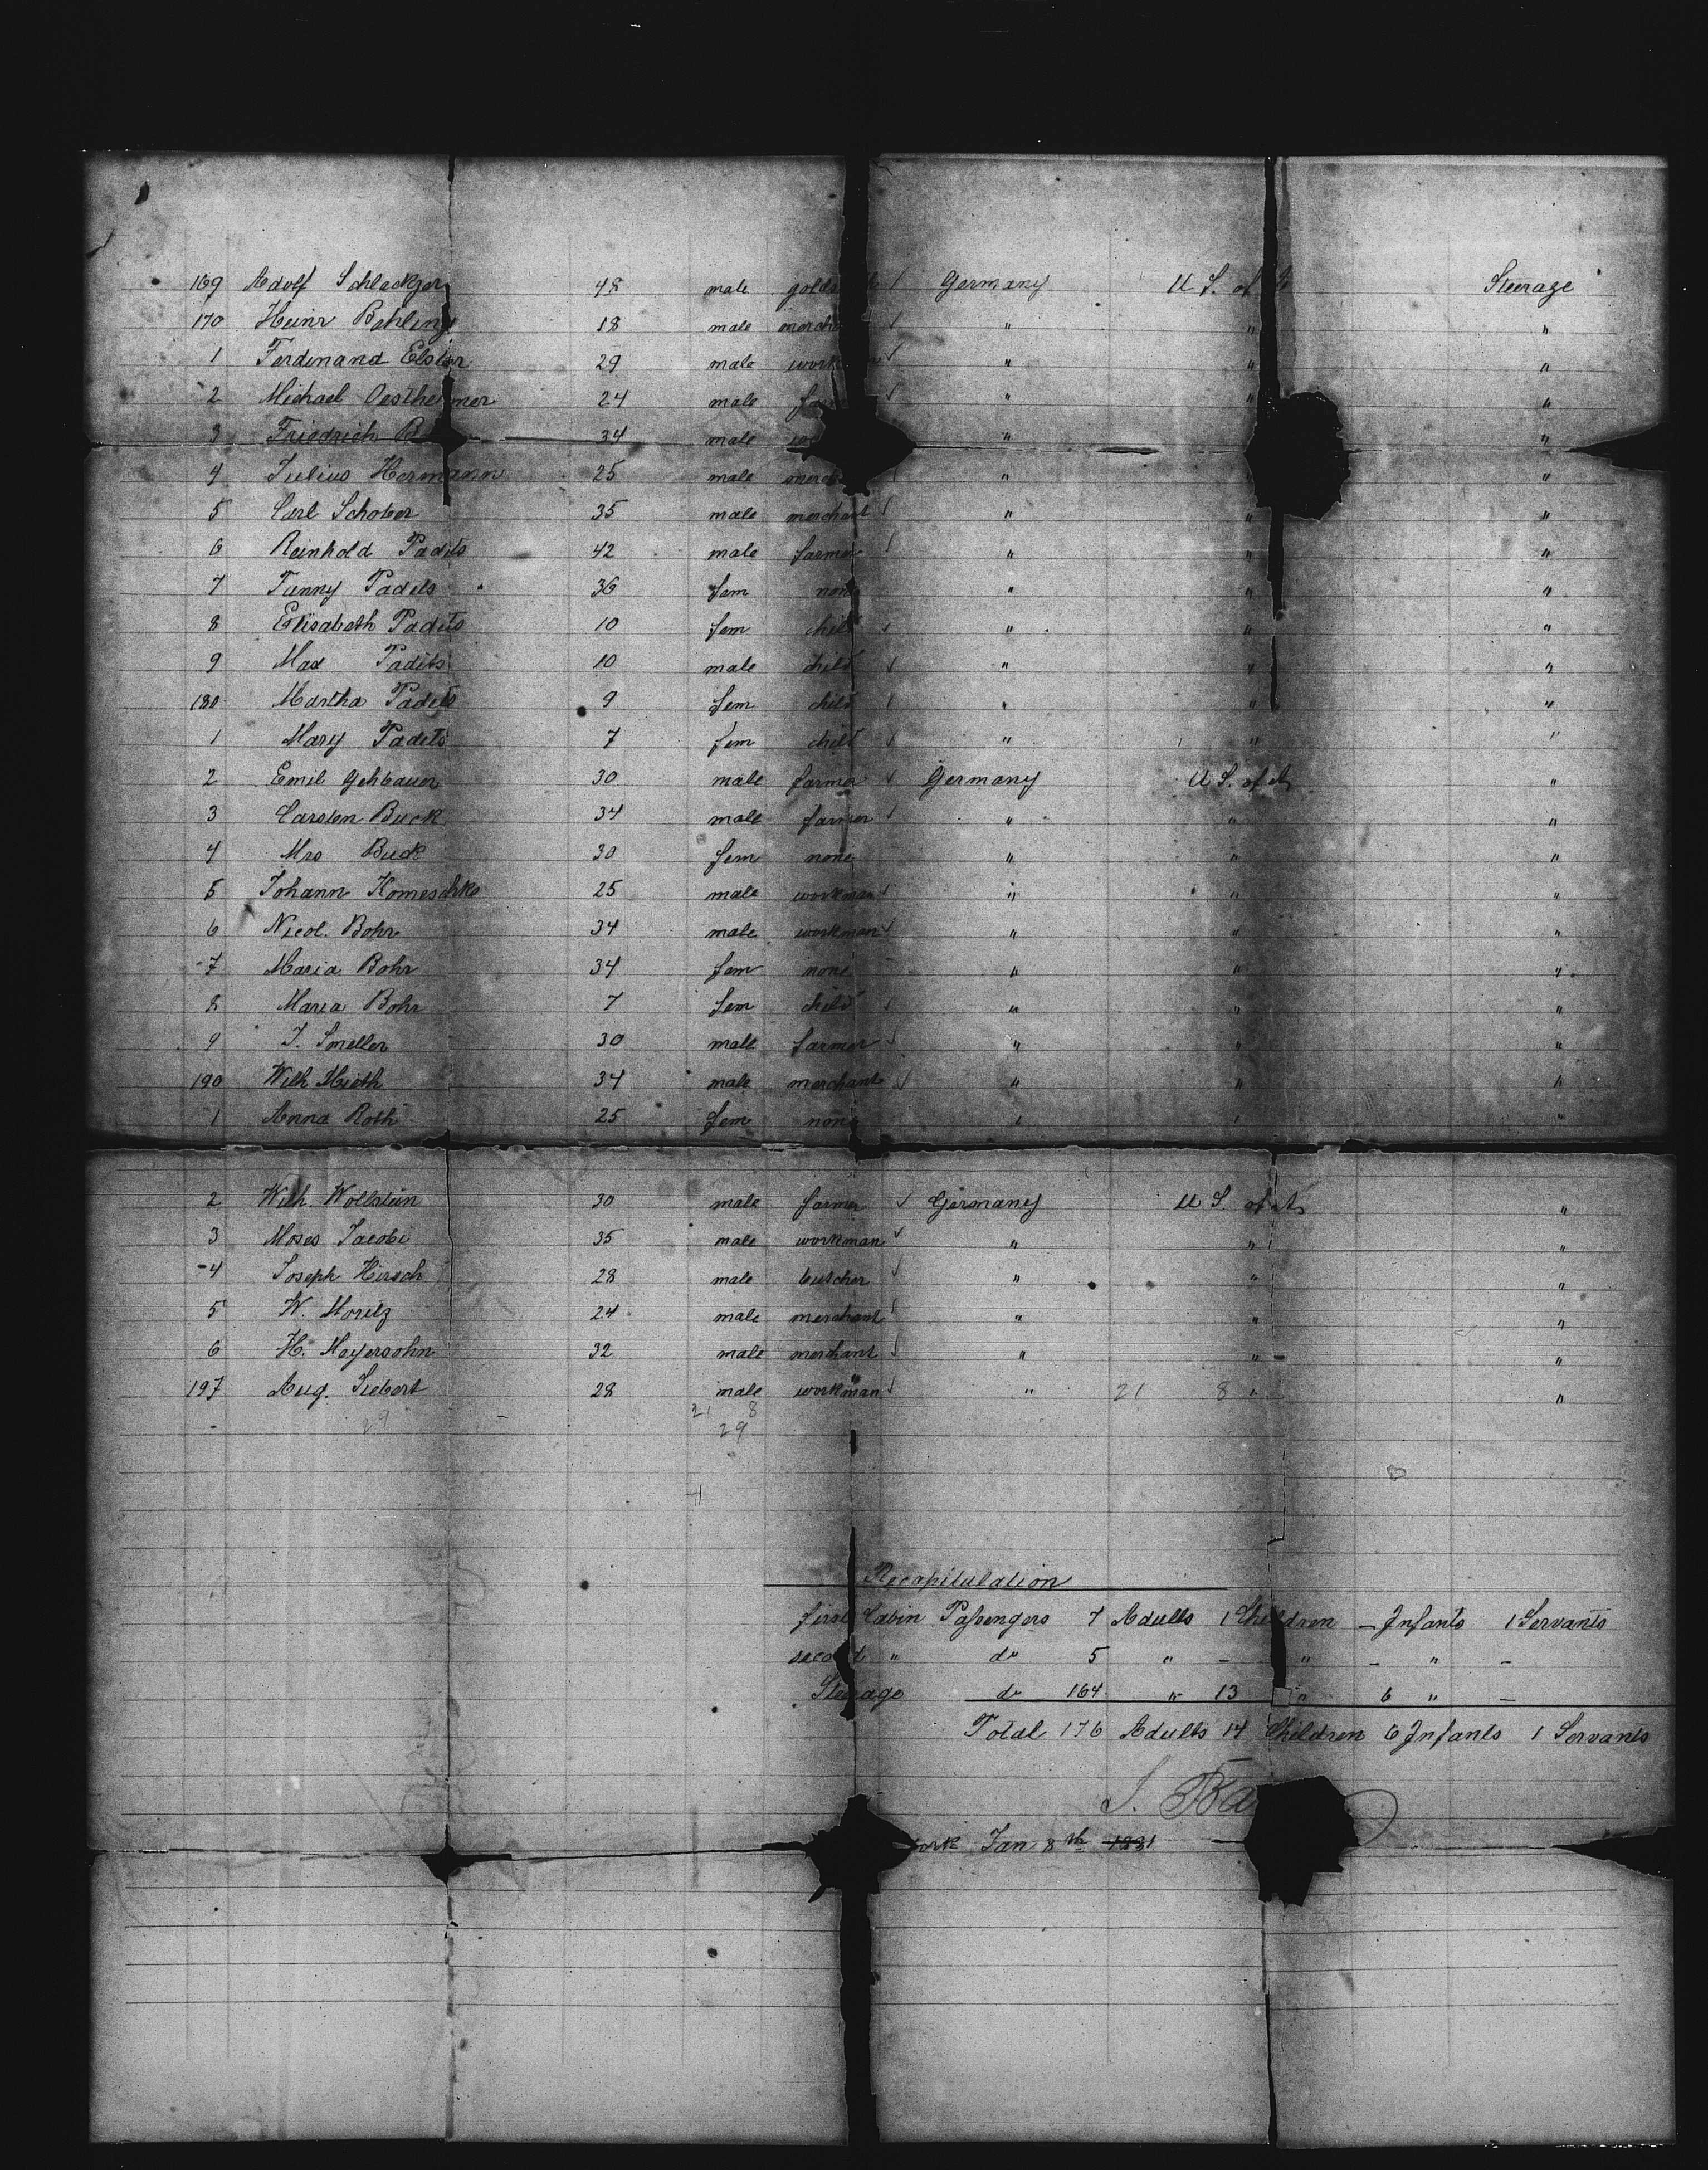 169 Adolf Schlackjer 48 male golds Germany U S. of Steerage
170 Heinr Bahling 18 male mercha " " "
1 Ferdinand Elster 29 male work " " "
2 Michael Oestheimer 24 male far " " "
3 Friedrich 34 male " "
4 Julius Hermann 25 male merch " "
5 Carl Schober 35 male merchant " " "
6 Reinhold Padets 42 male farmer " " "
7 Fanny Padets 36 fem none " " "
8 Elisabeth Padets 10 fem child " " "
9 Max Padets 10 male child " " "
180 Martha Padets 9 fem child " " "
1 Mary Padets 7 fem child " " "
2 Emil Gehbauer 30 male farmer Germany U S. of A "
3 Carsten Buck 34 male farmer " " "
4 Mrs Buck 30 fem none " " "
5 Johann Komeschke 25 male workman " " "
6 Nicol. Bohr 34 male workman " " "
7 Maria Bohr 34 fem none " " "
8 Maria Bohr 7 fem child " " "
9 J. Smeller 30 male farmer " " "
190 Wilh Hieth 34 male merchant " " "
1 Anna Roth 25 fem none " " "
2 Wilh. Wollstein 30 male farmer Germany U S. of A "
3 Moses Jacobi 35 male workman " " "
4 Joseph Hirsch 28 male butcher " " "
5 W. Moritz 24 male merchant " " "
6 H. Meyersohn 32 male merchant " " "
197 Aug. Siebert 28 male workman " 21 8 " "
21 8
29 29
Recapitulation
first Cabin Passengers 7 Adults 1 Children - Infants 1 Servants
second " do 5 " - " - " -
Steerage do 164 " 13 " 6 " -
Total 176 Adults 14 Children 6 Infants 1 Servants
J. Ba
York Jan 8th 1881